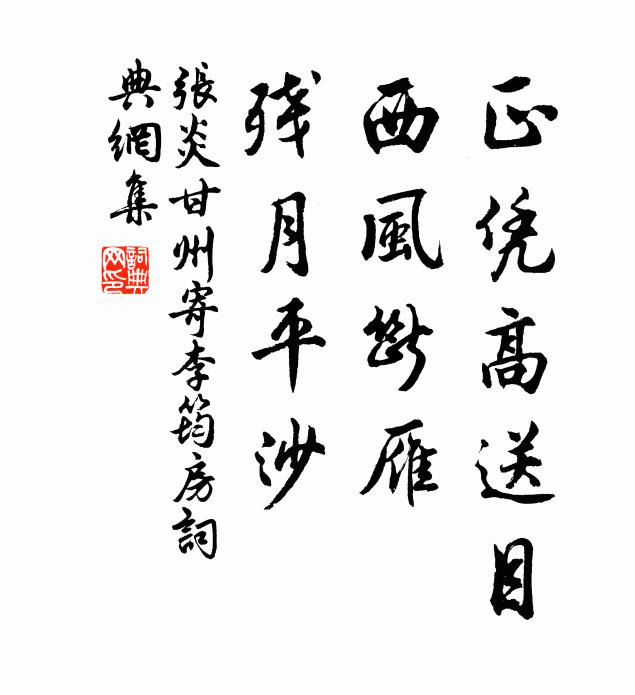 正凭高送目
西風斷雁
残月平沙
張炎甘州寄李筠房詞
典網集
詞典
网印